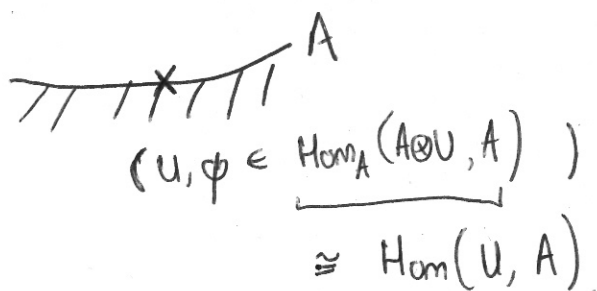 A
(U, φ ∈ Hom_A(A⊗U, A) )
≅ Hom(U, A)